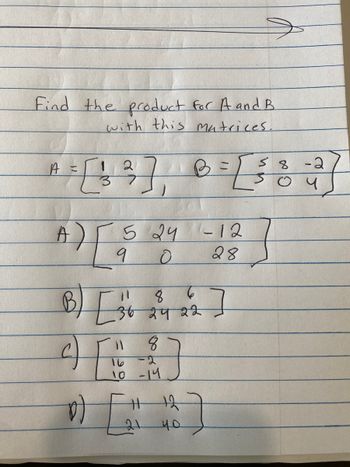 Find the product for A and B
with this matrices.
A = [ 1 2 B = [ 5 8 -2
3 7 ], 5 0 4 ]
A) [ 5 24 -12
9 0 28 ]
B) [ 11 8 6
36 24 22 ]
C) [ 11 8
16 -2
10 -14 ]
D) [ 11 12
21 40 ]